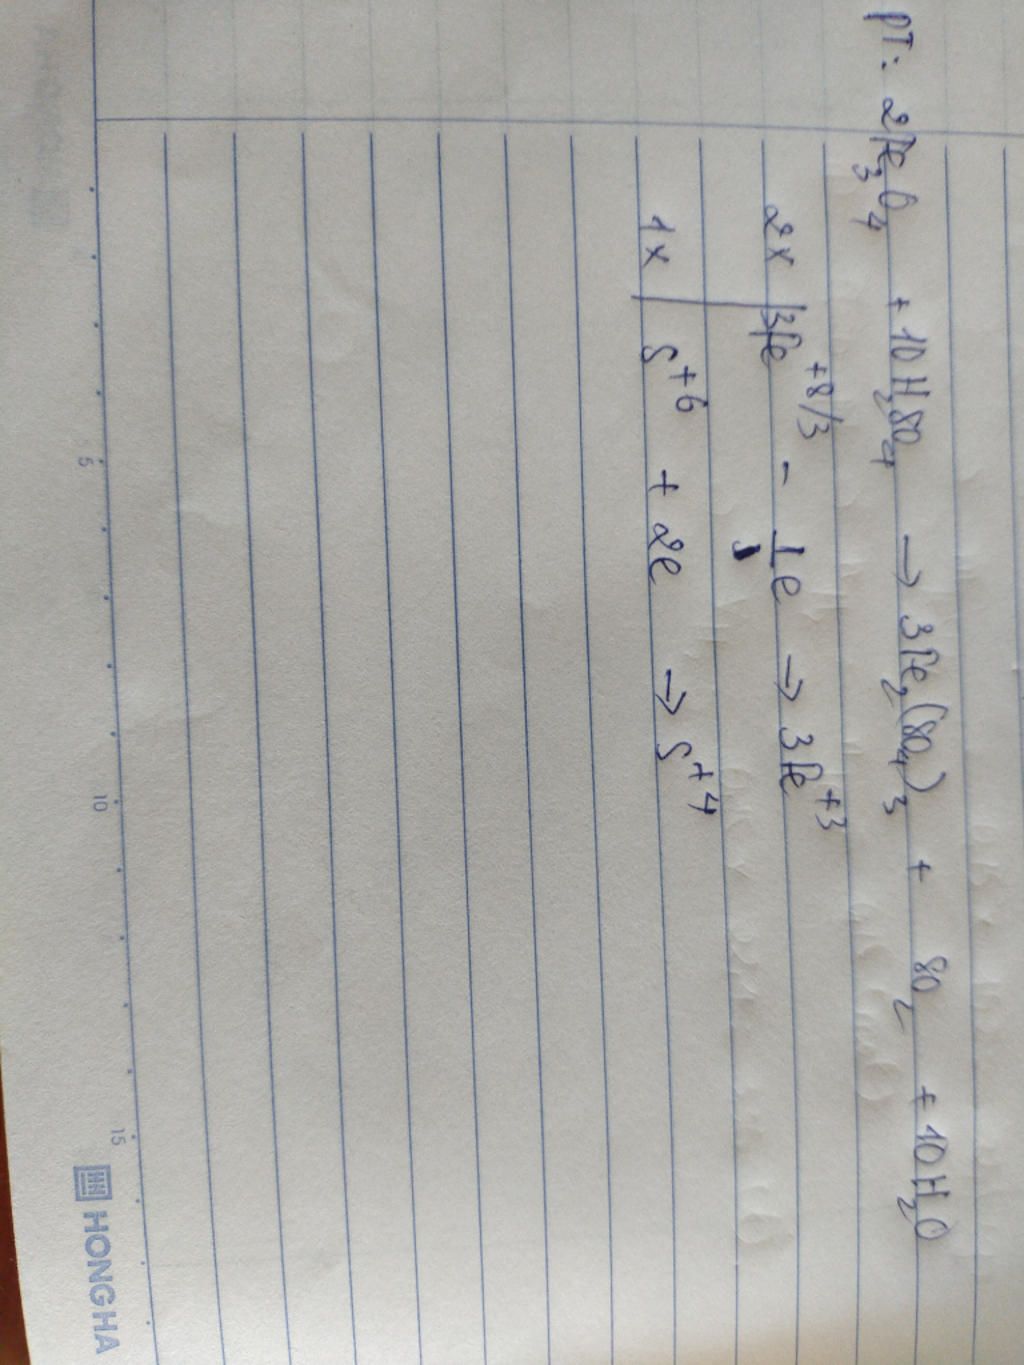 PT: 2Fe₃O₄ + 10H₂SO₄ → 3Fe₂(SO₄)₃ + SO₂ + 10H₂O
2x | 3Fe⁺⁸ᐟ³ - 1e → 3Fe⁺³
1x | S⁺⁶ + 2e → S⁺⁴
5 10 15
HONG HA